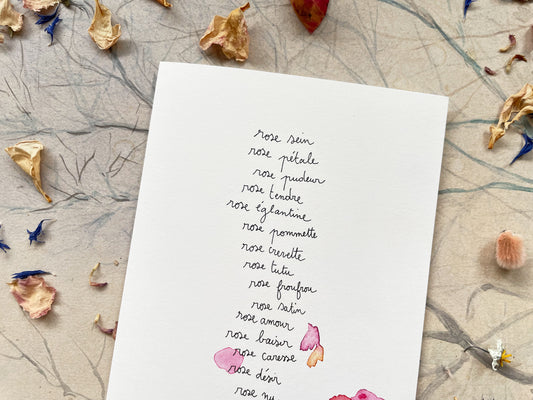 rose sein
rose pétale
rose pudeur
rose tendre
rose églantine
rose pommette
rose crevette
rose tutu
rose froufrou
rose satin
rose amour
rose baiser
rose caresse
rose désir
rose nu